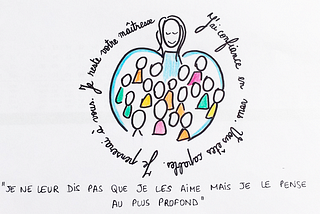 Je reste votre maîtresse
J'ai confiance en vous. Vous êtes capables. Je penserai à vous.
"JE NE LEUR DIS PAS QUE JE LES AIME MAIS JE LE PENSE
AU PLUS PROFOND"